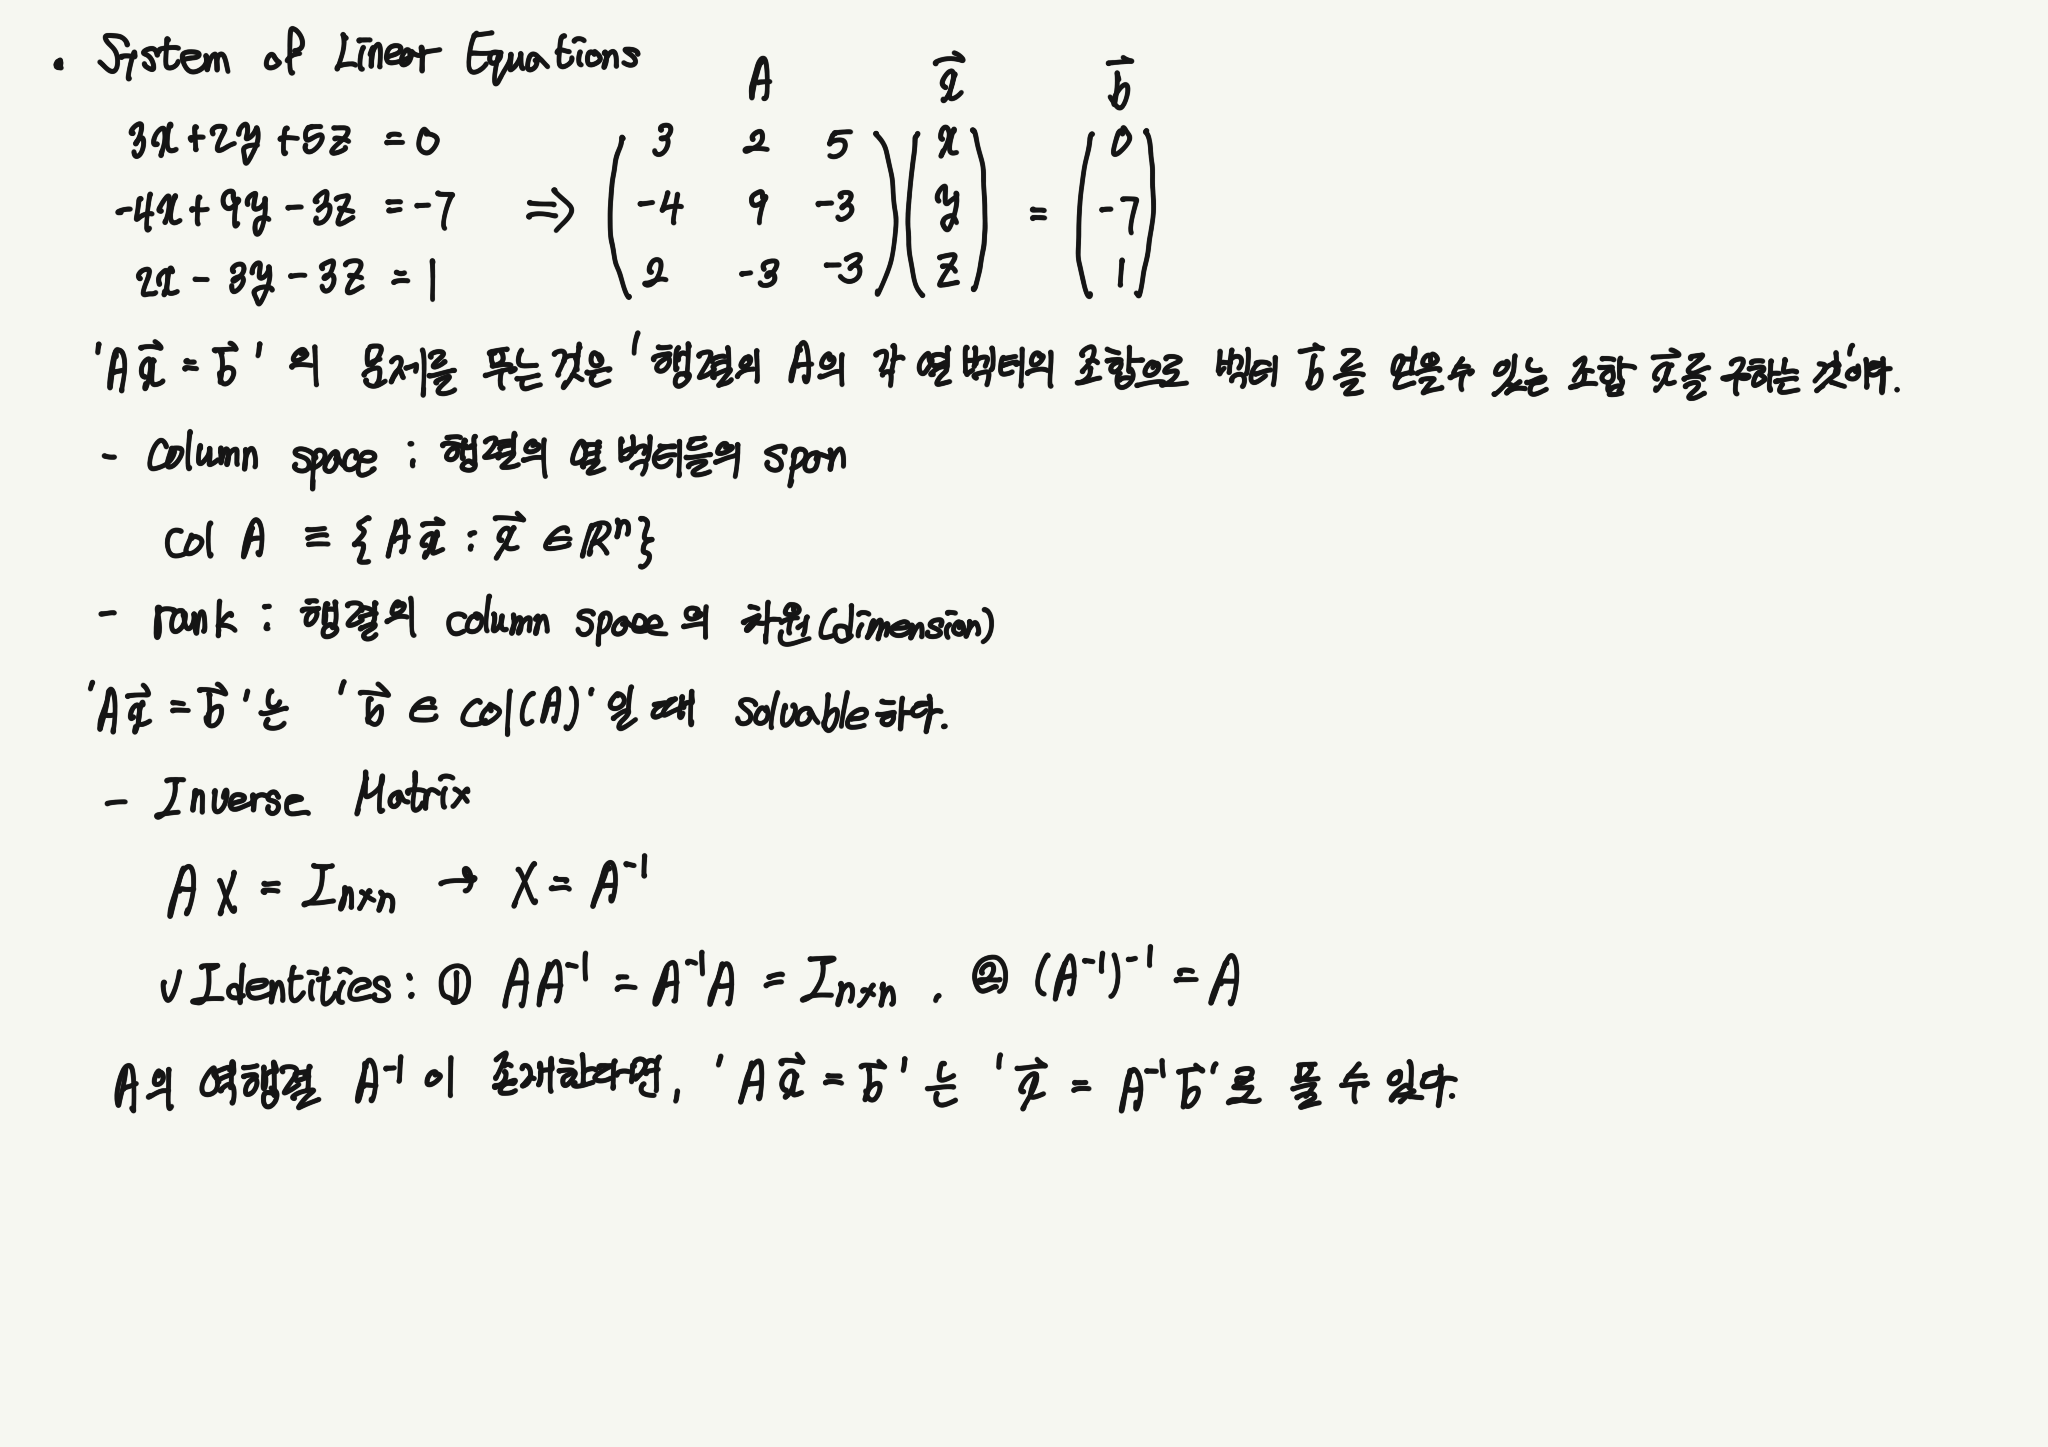 • System of Linear Equations
A x⃗ b⃗
3x+2y+5z = 0
-4x+9y-3z = -7
2x-3y-3z = 1
⇒ ( 3 2 5 ) ( x ) ( 0 )
( -4 9 -3 ) ( y ) = ( -7 )
( 2 -3 -3 ) ( z ) ( 1 )
'Ax⃗ = b⃗' 의 문제를 푸는 것은 '행렬의 A의 각 열 벡터의 조합으로 벡터 b⃗를 얻을 수 있는 조합 x⃗를 구하는 것'이다.
- Column space : 행렬의 열 벡터들의 span
col A ≡ {Ax⃗ : x⃗ ∈ ℝⁿ}
- rank : 행렬의 column space의 차원(dimension)
'Ax⃗ = b⃗'는 'b⃗ ∈ col(A)'일 때 solvable하다.
- Inverse Matrix
AX = Iₙₓₙ → X = A⁻¹
√ Identities : ① AA⁻¹ = A⁻¹A = Iₙₓₙ , ② (A⁻¹)⁻¹ = A
A의 역행렬 A⁻¹이 존재한다면, 'Ax⃗ = b⃗'는 'x⃗ = A⁻¹b⃗'로 풀 수 있다.